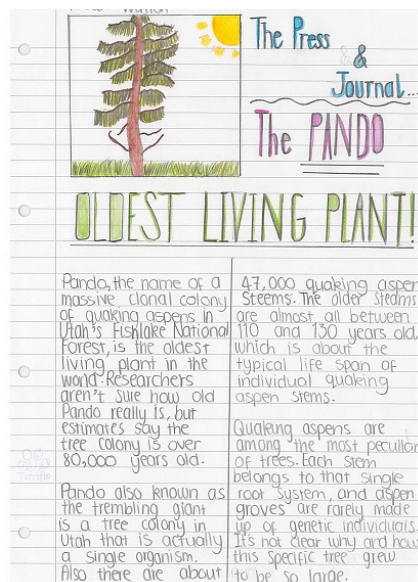 The Press
&
Journal...
The PANDO
OLDEST LIVING PLANT!
Pando, the name of a
massive clonal colony
of quaking aspens in
Utah's Fishlake National
Forest, is the oldest
living plant in the
world. Researchers
aren't sure how old
Pando really is, but
estimates say the
tree colony is over
80,000 years old.
Pando also known as
the trembling giant
is a tree colony in
Utah that is actually
a single organism.
Also there are about
47,000 quaking aspen
Steems. The older Steams
are almost all between
110 and 130 years old,
which is about the
typical life span of
individual quaking
aspen stems.
Quaking aspens are
among the most peculiar
of trees. Each stem
belongs to that single
root system, and aspen
groves are rarely made
up of genetic individuals.
It's not clear why and how
this specific tree grew
to be so large.